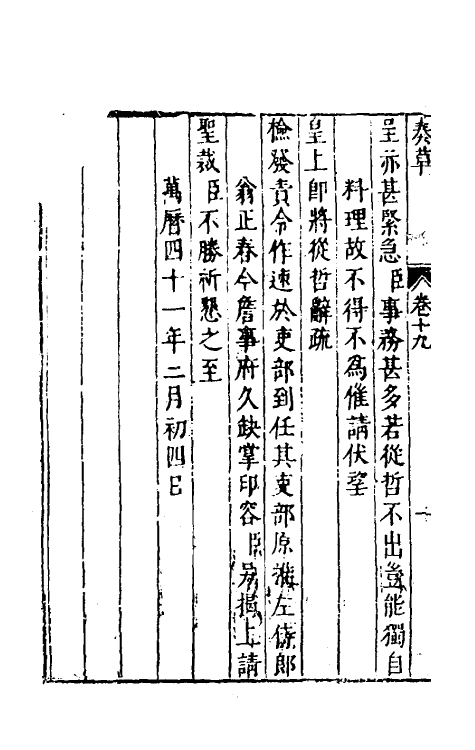 奏草
卷十九
一
呈亦甚緊急臣事務甚多若從哲不出豈能獨自
料理故不得不爲催請伏望
皇上卽將從哲辭疏
檢發責令作速於吏部到任其吏部原推左侍郎
翁正春今詹事府久缺掌印容臣另揭上請
聖裁臣不勝祈懇之至
萬曆四十一年二月初四日